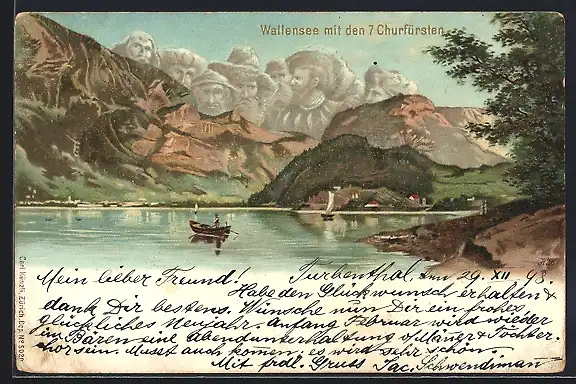 Wallensee mit den 7 Churfürsten
Mein lieber Freund! Turbenthal, den 29. XII 98.
Habe den Glückwunsch erhalten &
dank Dir bestens. Wünsche nun Dir ein frohes
glückliches Neujahr. Anfang Februar wird wieder
im Bären eine Abendunterhaltung v. Männer & Töchter-
chor sein. Musst auch komen, es wird sehr schön.
Mit frdl. Gruss Jac. Schwendimann
Carl Künzli, Zürich, Dep. No 5020